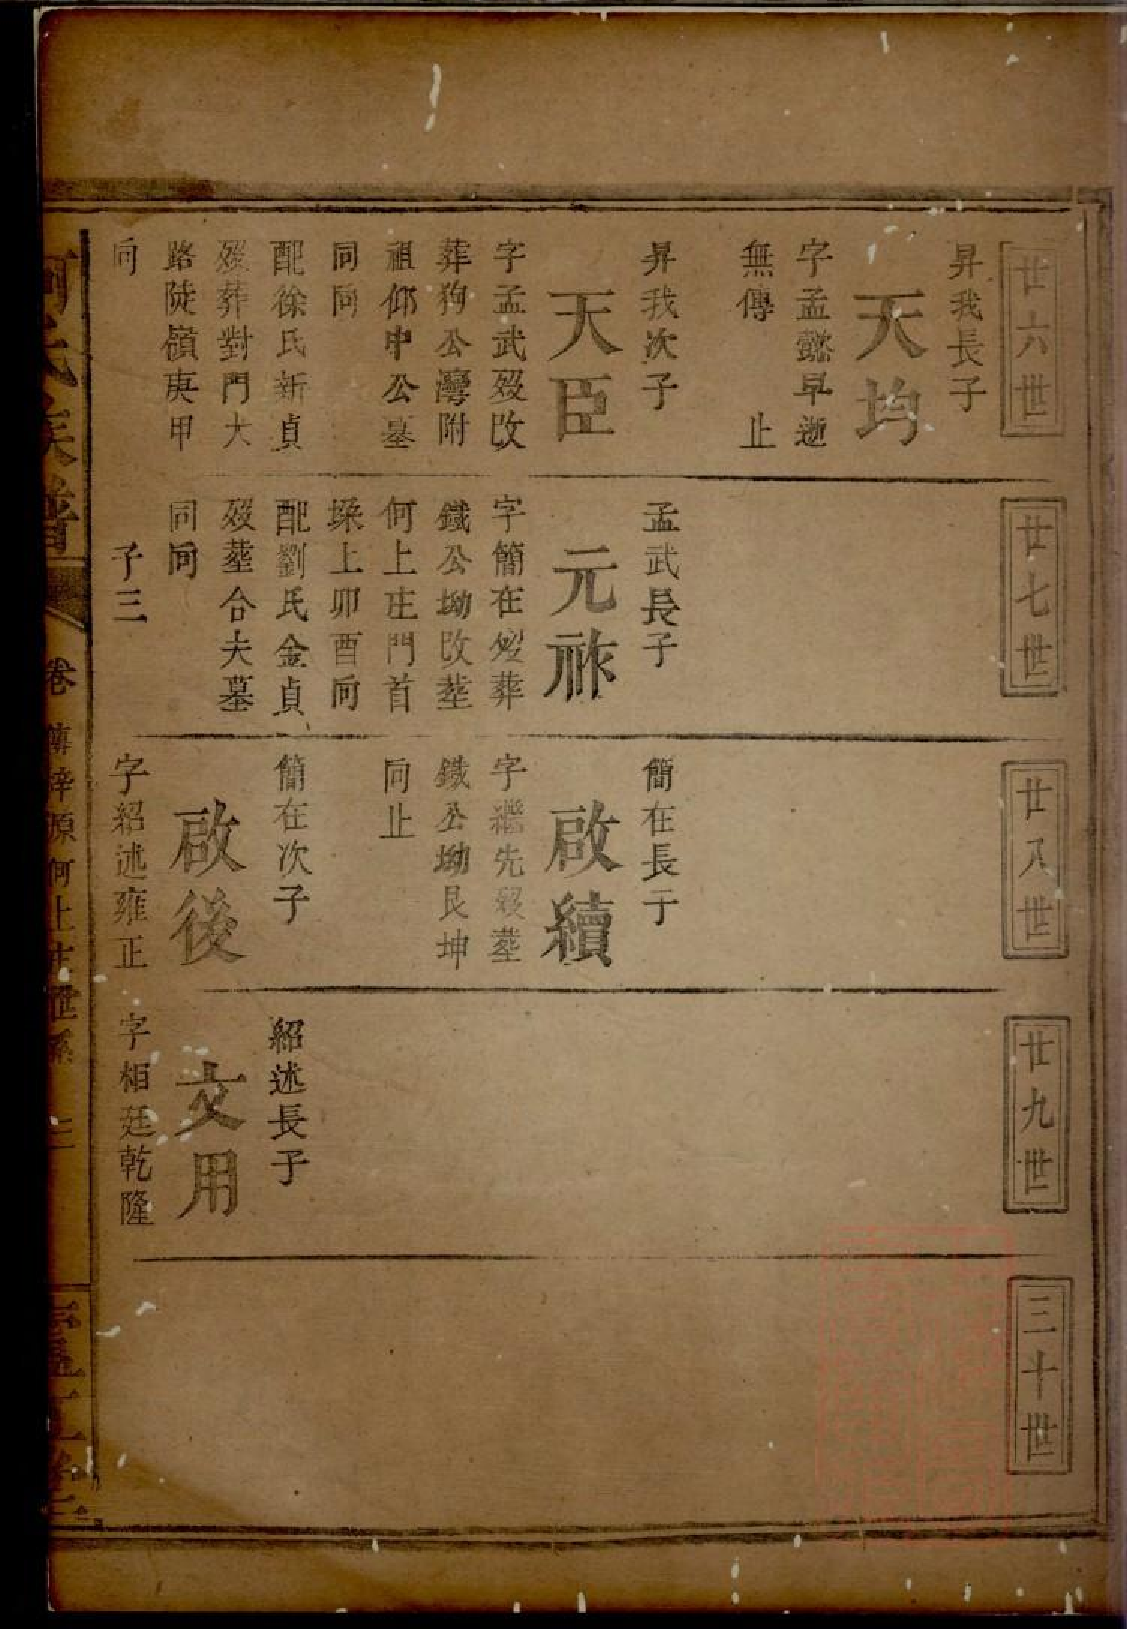 廿六世
昇我長子
天均
字孟懿早逝
無傳　止
昇我次子
天臣
字孟武歿改
葬狗公灣附
祖仰申公墓
同向
配徐氏新貞
歿葬對門大
路陡嶺庚甲
向
廿七世
孟武長子
元祚
字簡在歿葬
鐵公坳改塟
何上庄門首
垛上卯酉向
配劉氏金貞
歿塟合夫墓
同向
子三
廿八世
簡在長子
啟續
字繼先歿塟
鐵公坳艮坤
向止
簡在次子
啟後
字紹述雍正
廿九世
紹述長子
文用
字相廷乾隆
三十世
何氏族譜
卷
梓源何上庄世系
三